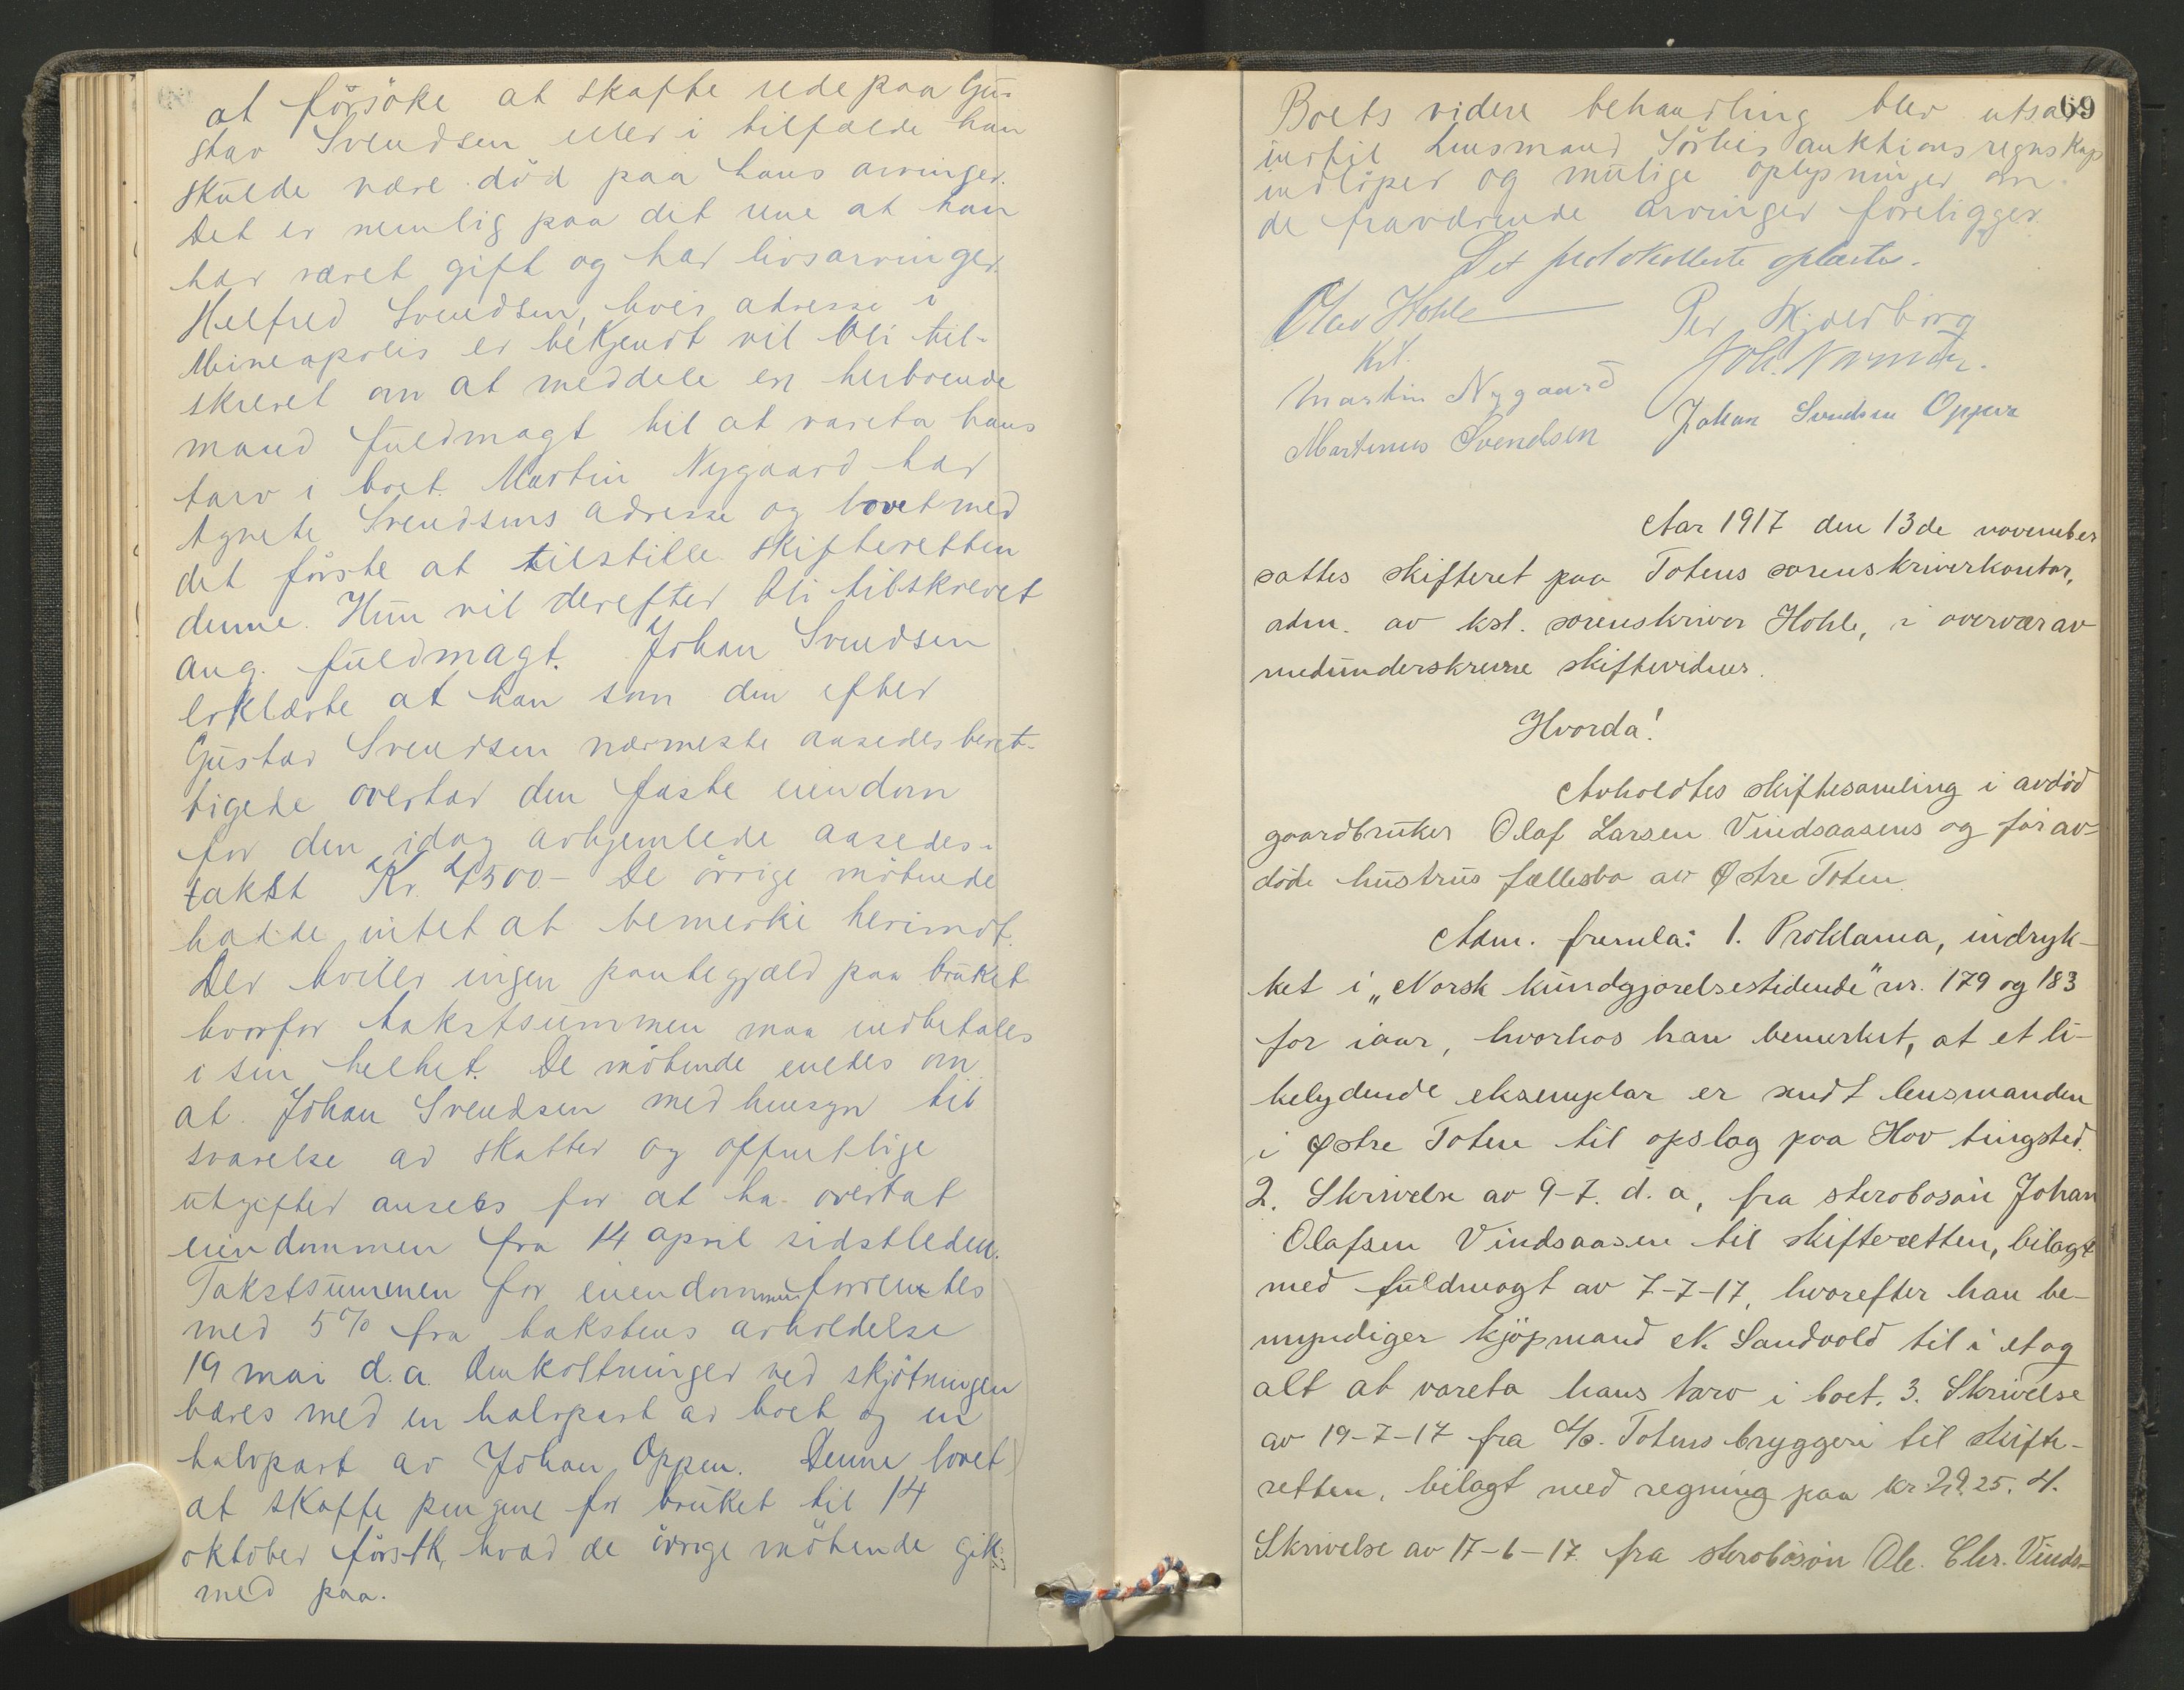 at försöke at skaffe rede paa Gu-
stav Svendsen eller i tilfælde han
skulde være död paa hans arvinger.
Det er nemlig paa det rene at han
har været gift og har livsarvinger.
Helfred Svendsen, hvis adresse i
Mineapolis er bekjendt vil bli til-
skrevet om at meddele en herboende
mand fuldmagt til at vareta hans
tarv i boet. Martin Nygaard har
Agnete Svendsens adresse og lovet med
det förste at tilstille skifteretten
denne. Hun vil derefter bli tilskrevet
ang. fuldmagt. Johan Svendsen
erklærte at han som den efter
Gustav Svendsen nærmeste aasedesberet-
tigede overtar den faste eiendom
for den idag avhjemlede aasedes-
takst Kr. 2500.- De övrige mötende
hadde intet at bemerke herimot.
Der hviler ingen pantegjæld paa bruket
hvorfor takstsummen maa indbetales
i sin helhet. De mötende enedes om
at Johan Svendsen med hensyn til
svarelse av skatter og offentlige
utgifter ansees for at ha overtat
eiendommen fra 14 april sidstleden.
Takstsummen for eiendommen forrentes
med 5% fra takstens avholdelse
19 mai d.a. Omkostninger ved skjötningen
bæres med en halvpart av boet og en
halvpart av Johan Oppen. Denne lovet
at skaffe pengene for bruket til 14
oktober förstk, hvad de övrige mötende gik
med paa.
69
Boets videre behandling blev utsat
indtil lensmand Sörlies auktionsregnskap
indlöper og mulige oplysninger om
de fraværende arvinger foreligger.
Det protokollerte oplæstes.
Olav Hohle Per Skjoldborg
kst. Joh. Narum
Martin Nygaard
Martinus Svendsen Johan Svendsen Oppen
Aar 1917 den 13de november
sattes skifteret paa Totens sorenskriverkontor,
adm. av kst. sorenskriver Hohle, i overvær av
medunderskrevne skiftevidner.
Hvorda!
Avholdtes skiftesamling i avdød
gaardbruker Olaf Larsen Vindsaasens og før av-
døde hustrus fællesbo av Østre Toten.
Adm. fremla: 1. Proklama, indryk-
ket i „Norsk kundgjørelsestidende" nr. 179 og 183
for iaar, hvorhos han bemerket, at et li-
kelydende eksemplar er sendt lensmanden
i Østre Toten til opslag paa Hov tingsted.
2. Skrivelse av 9-7. d. a, fra sterbosøn Johan
Olafsen Vindsaasen til skifteretten, bilagt
med fuldmagt av 7-7-17, hvorefter han be-
myndiger kjøpmand N. Sandvold til i et og
alt at vareta hans tarv i boet. 3. Skrivelse
av 19-7-17 fra A/S. Totens bryggeri til skifte-
retten, bilagt med regning paa kr 25. 4.
Skrivelse av 17-6-17 fra sterbosøn Ole Chr. Vinds-